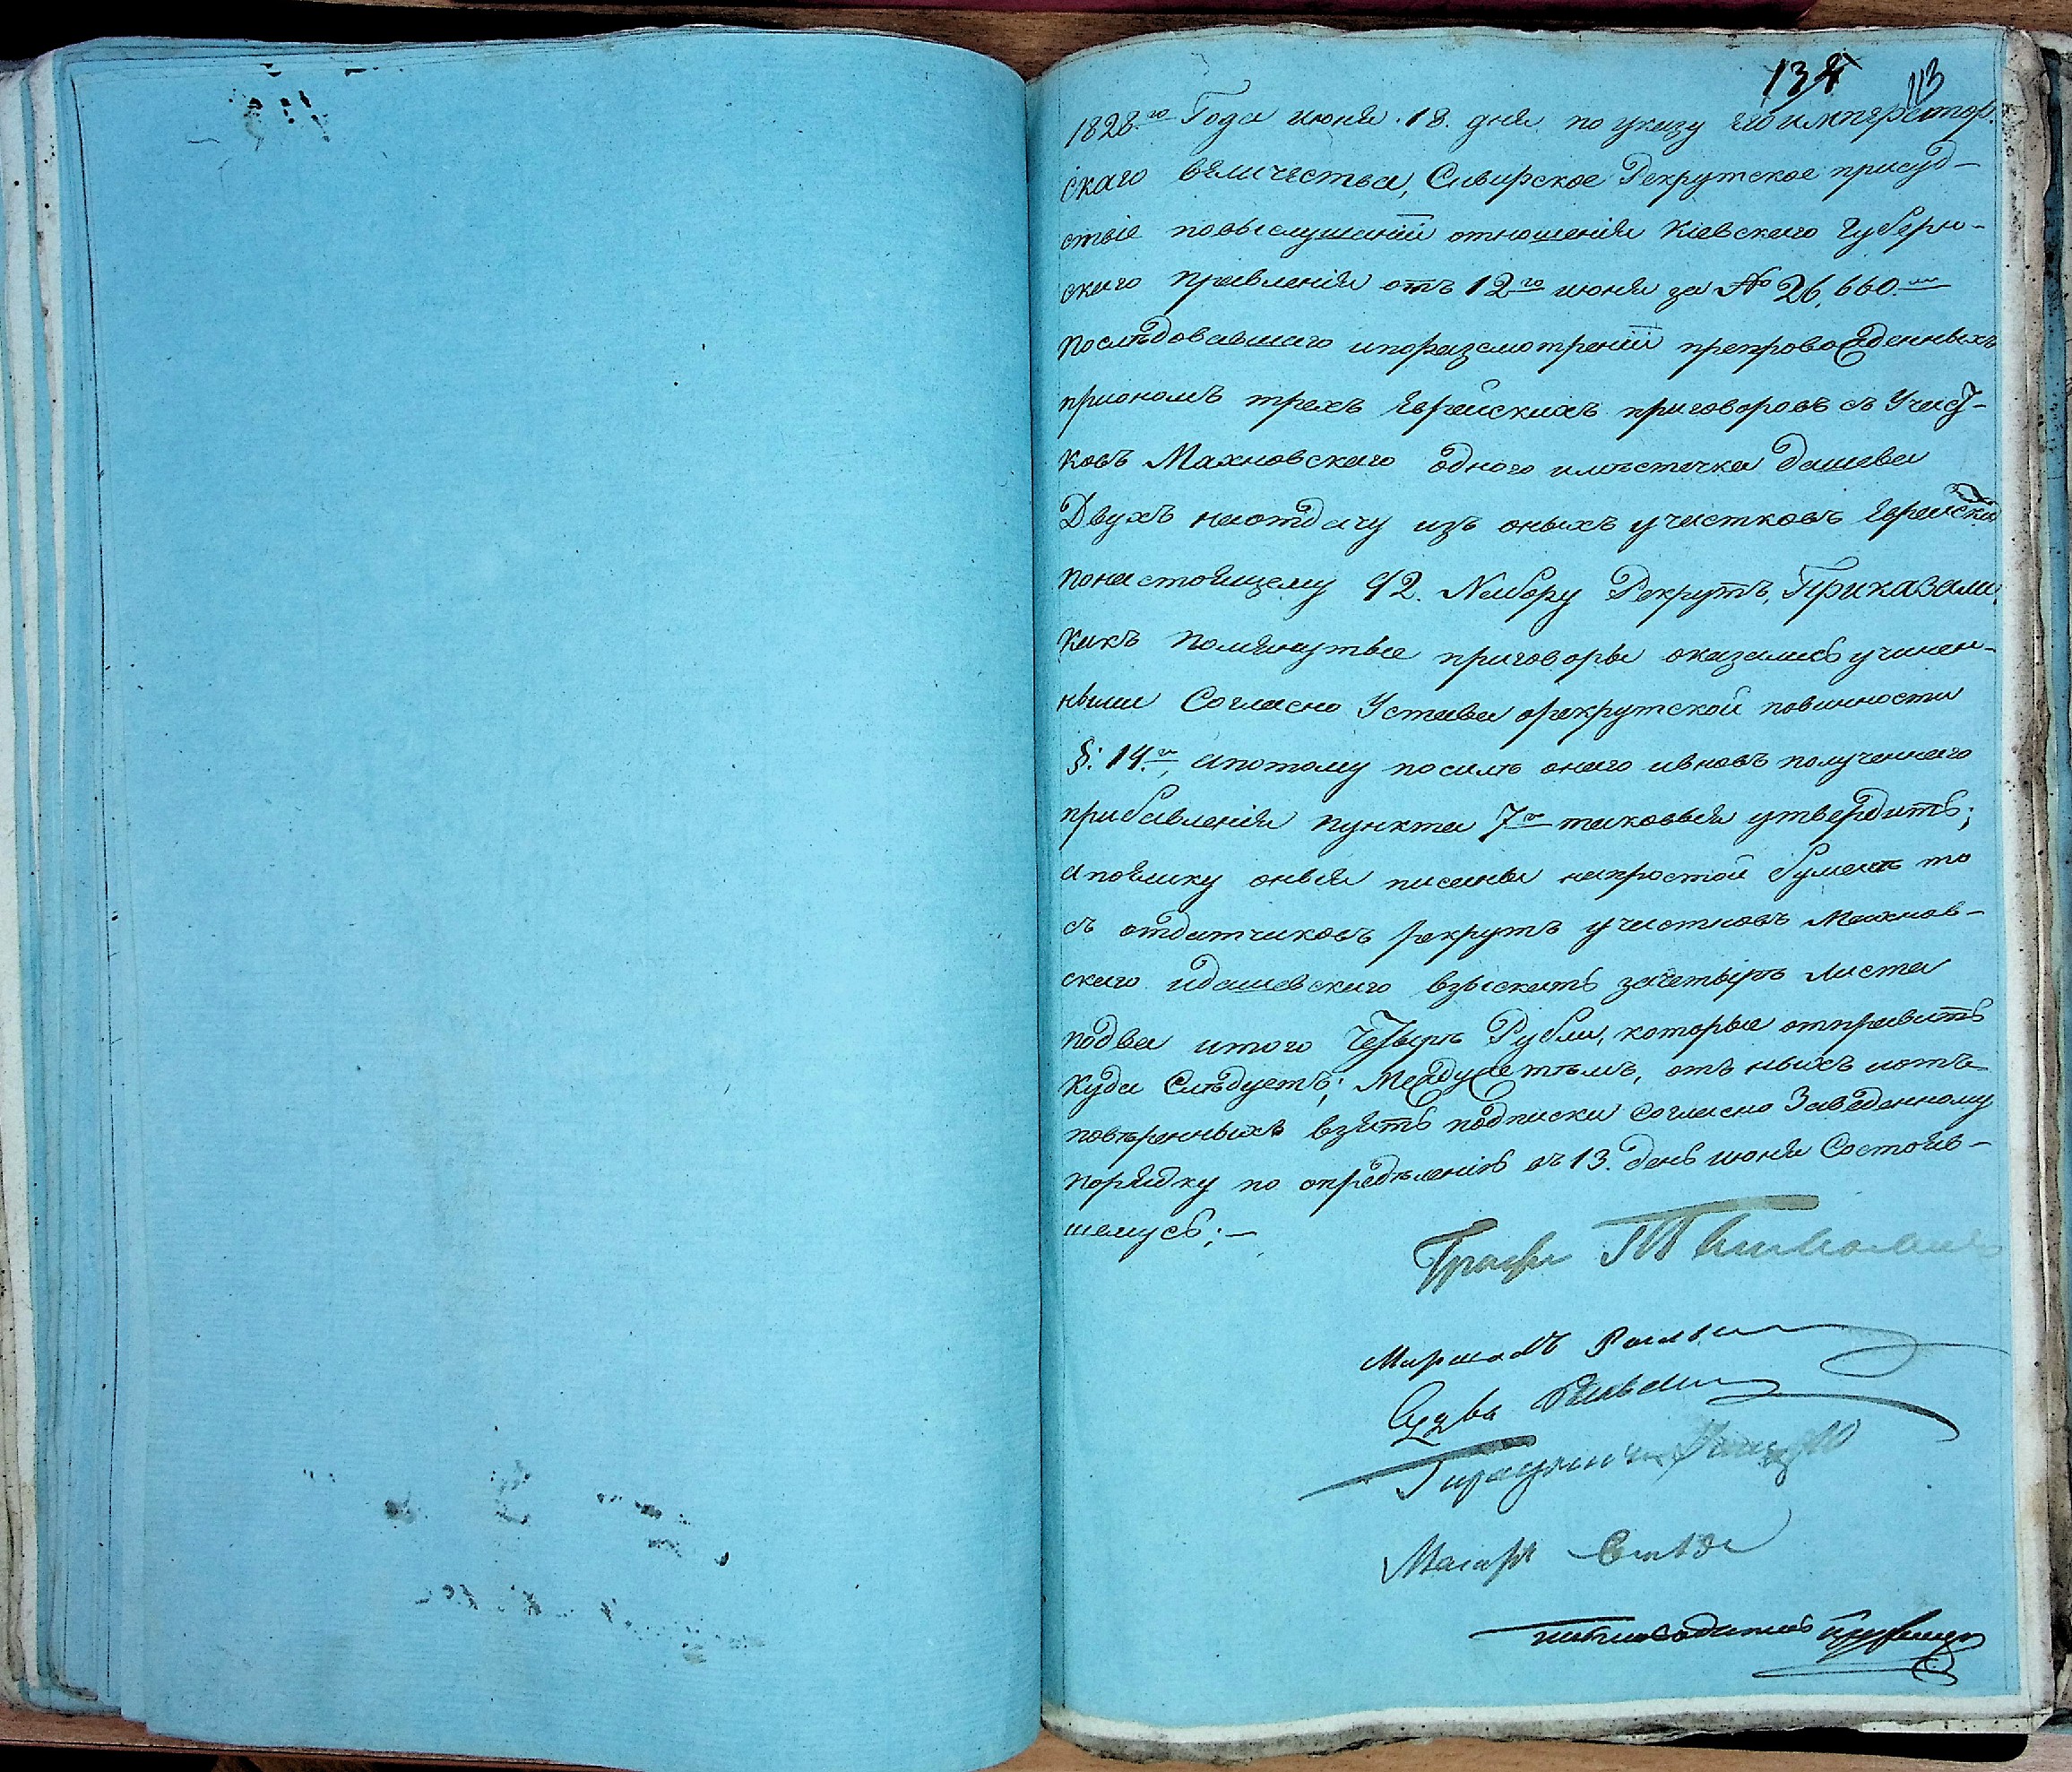 134 113
1828.го Года июня 18. дня по указу его император.
скаго величества, Сквирское Рекрутское присуд-
ствіе повыслушаніи отношенія Кіевскаго Губерн-
скаго правленія отъ 12го июня за № 26,660.м
последовавшаго ипоразсмотреніи препровожденныхъ
приономъ трехъ Еврейскихъ приговоровъ съ Участ-
ковъ Махновскаго одного иместечка Дашева
Двухъ наотдачу изъ оныхъ участковъ Еврейских
понастоящему 92. Набору Рекрутъ, Приказали.
какъ помянутые приговоры оказались учинен-
ными Согласно Устава орекрутской повинности
§: 14.й, апотому посилѣ онаго ивновъ полученнаго
прибавленія пункта 7го таковыя утвердить;
апоелику оныя писаны напростой бумагѣ то
съ отдатчиковъ рекрутъ участковъ Махнов-
скаго идашевскаго взыскать зачетырѣ листа
подва итого Четырѣ Рубли, которые отправить
куда Слѣдуетъ; Междусѣтѣмъ, отъ ныхъ иотъ
повѣренныхъ взять подписки согласно Заведенному
порядку по опредѣленію въ 13. день июня Состояв-
шемусь;-
Графъ
Маршалъ
Судья
Городничій
Маіоръ